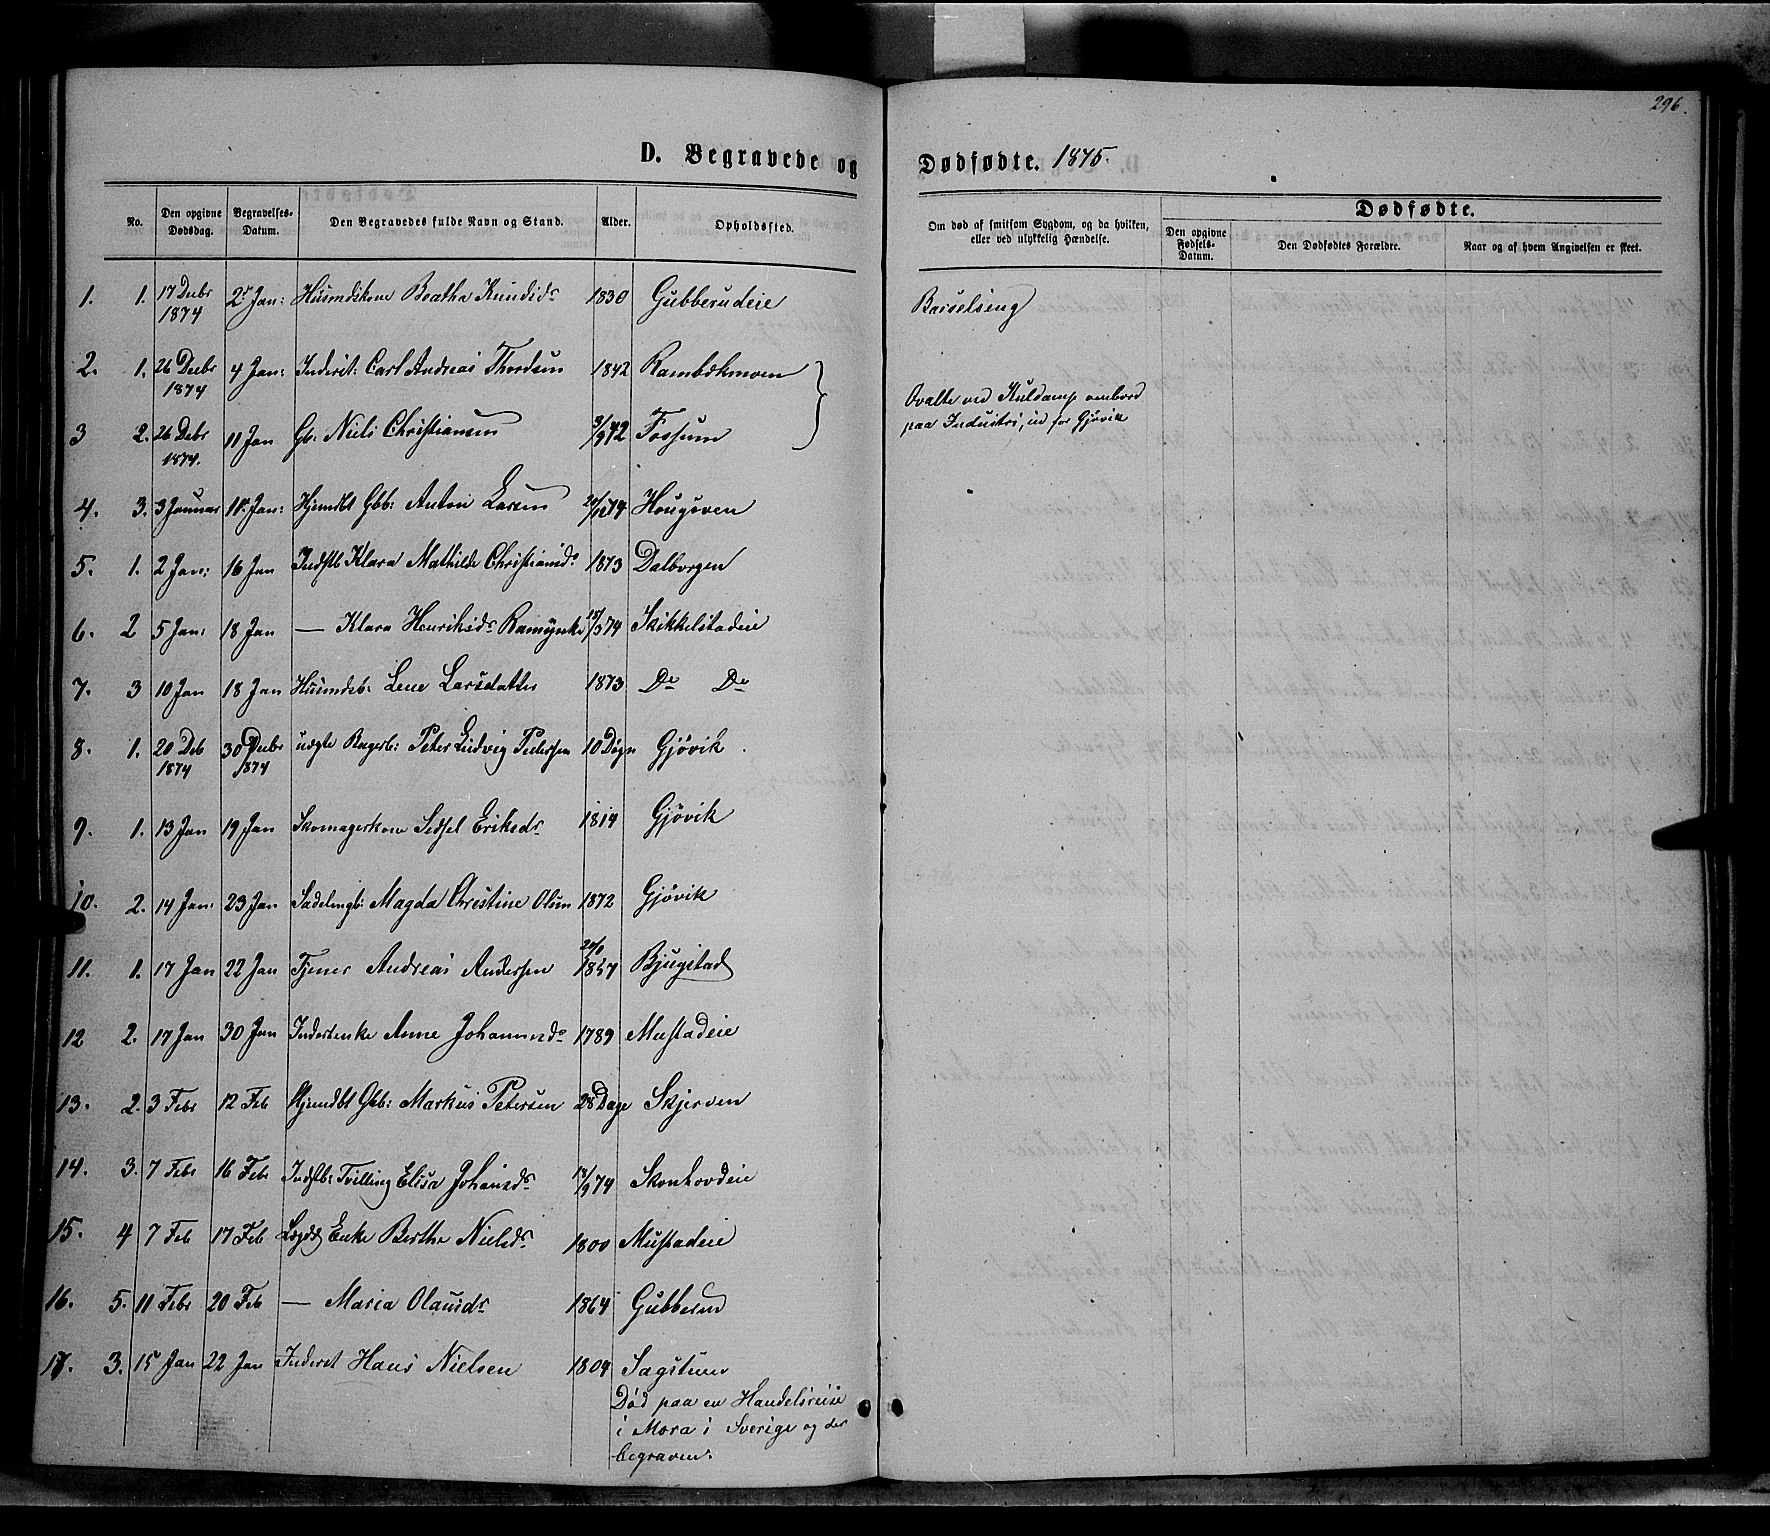 296.
D. Begravede og Dødfødte. 1875.
No.
Den opgivne Dødsdag.
Begravelses-Datum.
Den Begravedes fulde Navn og Stand.
Alder.
Opholdssted.
Om død af smitsom Sygdom, og da hvilken, eller ved ulykkelig Hændelse.
Dødfødte.
Den opgivne Fødsels-Datum.
Den Dødfødtes Forældre.
Naar og af hvem Angivelsen er skeet.
1. 1. 17 Decbr 1874 2 Jan: Husmdskone Beatha Knudsdr 1830 Gubberudeie Barselseng
2. 1. 26 Decbr 1874 4 Jan: Inderst: Carl Andreas Thordsen 1842 Rambækmoen
Qvalte ved Kuldamp ombord
paa Industri, ud for Gjøvik
3 2. 26 Debr 1874. 11 Jan Gb: Niels Christiansen 3/9 42 Fossum
4. 3. 3 Januar 11 Jan: Hjemdbt Gbb: Anton Larsen 74 Hougsven
5. 1. 2 Jan: 16 Jan Indstb Klara Mathilde Christiansdr 1873 Dalborgen
6. 2 5 Jan: 18 Jan — Klara Henriksdr 74 Skikkelstadeie
7. 3 10 Jan 18 Jan Husmdsb: Lene Larsdatter 1873 Do Do
8. 1. 20 Deb 1874 30 Decbr 1874 uægte Bagerb: Peter Ludvig Pedersen 10 Døgn Gjøvik
9. 1. 13 Jan 19 Jan Skomagerkone Sidsel Eriksdr 1814 Gjøvik
10. 2. 14 Jan: 23 Jan Magda Christine Olsen 1872 Gjøvik
11. 1. 17 Jan 22 Jan Tjener Andreas Andersen 1857 Bjugstad
12 2. 17 Jan 30 Jan Inderstenke Anne Johannesdr 1789 Mustadeie
13. 2. 3 Febr 12 Feb Hjemdbt Gbb: Markus Petersen 28 Dage Skjerven
14. 3. 7 Febr 16 Feb Indstb: Tvilling Elisa Johansdr 13/9 74 Skonhovdeie
15. 4 7 Feb 17 Feb Lægds Enke Berthe Nielsdr 1800 Mustadeie
16. 5. 11 Febr 20 Feb — Maria Olausdr 1864 Gubberud
17. 3. 15 Jan 22 Jan Inderst Hans Nielsen 1804 Sagstuen
Død paa en Handelsreise
i Mora i Sverige og der
begraven.